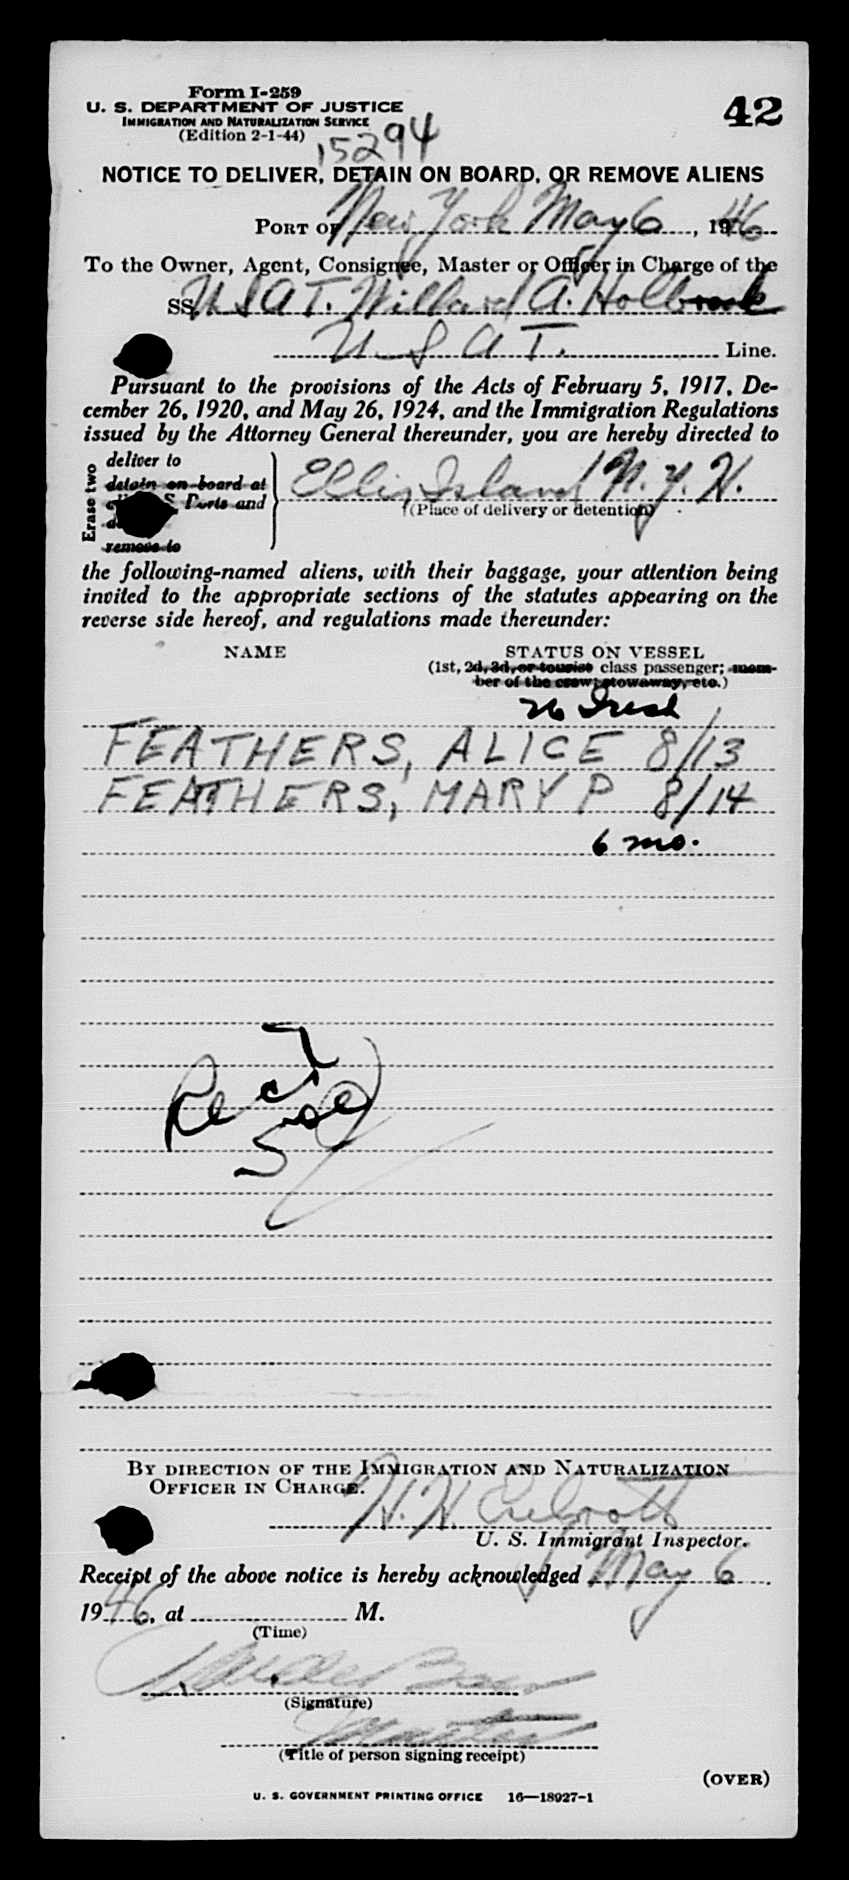 Form I-259
U. S. DEPARTMENT OF JUSTICE
IMMIGRATION AND NATURALIZATION SERVICE
(Edition 2-1-44)
42
15294
NOTICE TO DELIVER, DETAIN ON BOARD, OR REMOVE ALIENS
PORT OF New York May 6, 1946
To the Owner, Agent, Consignee, Master or Officer in Charge of the
SS USAT. Willard A. Holbrook
U S A T. Line.
Pursuant to the provisions of the Acts of February 5, 1917, De-
cember 26, 1920, and May 26, 1924, and the Immigration Regulations
issued by the Attorney General thereunder, you are hereby directed to
Erase two
deliver to
detain on board at
S. Ports and
remove to
Ellis Island N. Y. H.
(Place of delivery or detention)
the following-named aliens, with their baggage, your attention being
invited to the appropriate sections of the statutes appearing on the
reverse side hereof, and regulations made thereunder:
NAME
STATUS ON VESSEL
(1st, 2d, 3d, or tourist class passenger; mem-
ber of the crew; stowaway, etc.)
26 Irish
FEATHERS, ALICE 8/13
FEATHERS, MARY P 8/14
6 mo.
BY DIRECTION OF THE IMMIGRATION AND NATURALIZATION
OFFICER IN CHARGE.
H. H.
U. S. Immigrant Inspector.
Receipt of the above notice is hereby acknowledged May 6
1946, at M.
(Time)
(Signature)
Master
(Title of person signing receipt)
(OVER)
U. S. GOVERNMENT PRINTING OFFICE 16—18927-1